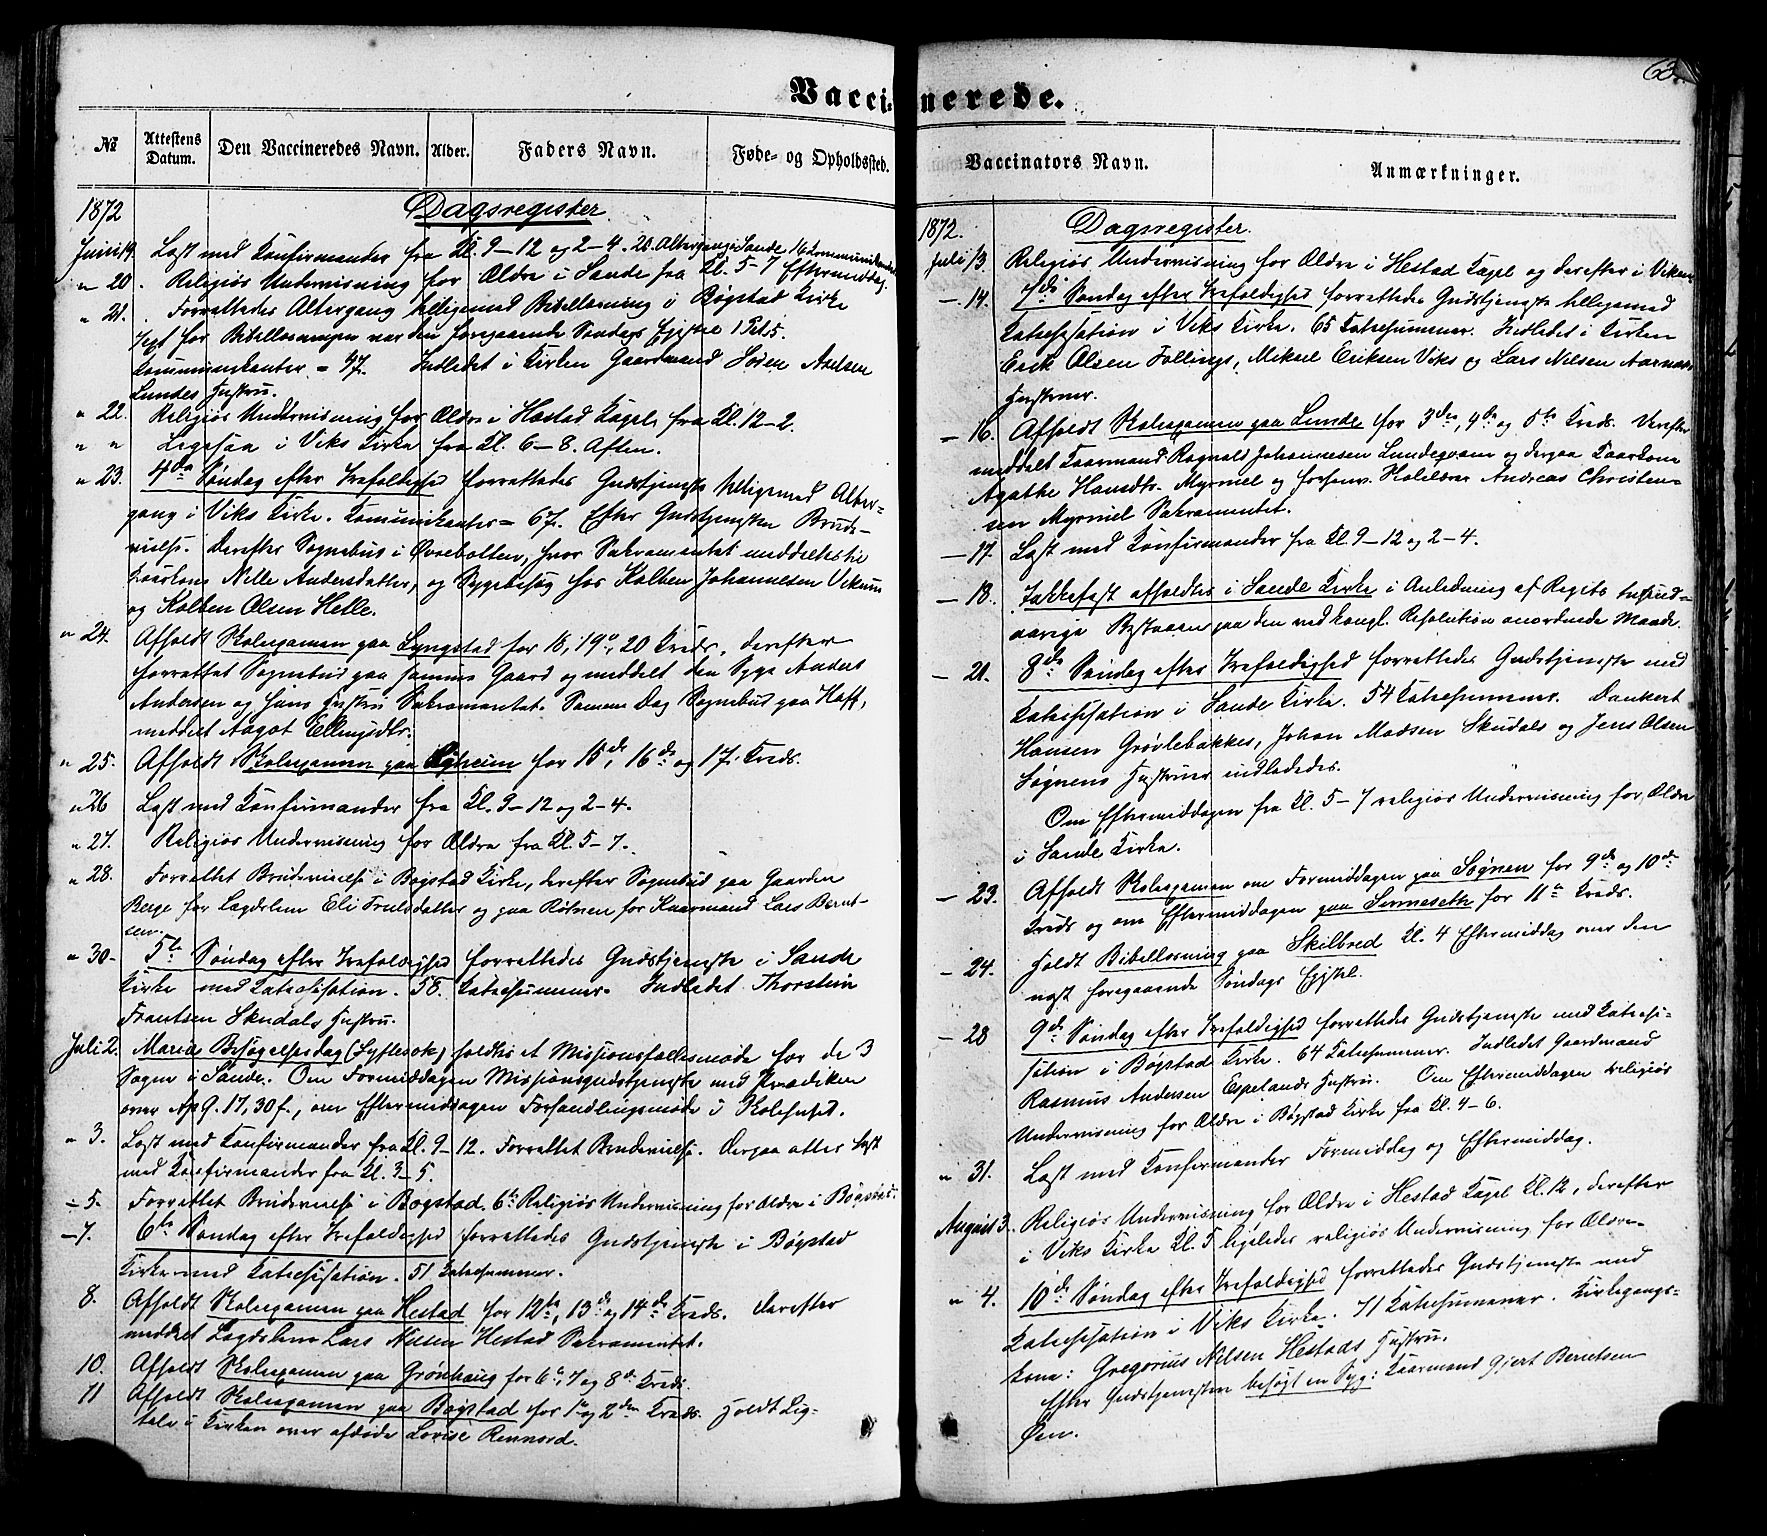 Vaccinerede.
63.
№
Attestens Datum.
Den Vaccineredes Navn.
Alder.
Faders Navn.
Føde- og Opholdssted.
Vaccinators Navn.
Anmærkninger.
1872 Dagsregister
Juni 19. Læst med Konfirmander fra Kl. 9–12 og 2–4. 20. Altergang i Sande 16 Kommunikanter
" 20. Religiøs Undervisning for Ældre i Sande fra Kl. 5–7 Eftermiddag.
" 21. Forrettedes Altergang tilligemed Bibellæsning i Bøgstad Kirke
Text for Bibellæsningen var den foregaaende Søndags Epistel 1 Pet 5.
Kommunikanter = 47. Indledet i Kirken Gaardmand Søren Axelsen
Lundes Hustru.
" 22. Religiøs Undervisning for Ældre i Hæstad Kapel fra Kl. 12–2.
" " Ligesaa i Viks Kirke fra Kl. 6–8. Aften.
" 23. 4de Søndag efter Trefoldighed forrettedes Gudstjeneste tilligemed Alter-
gang i Viks Kirke. Kommunikanter = 67. Efter Gudstjenesten Brude-
vielse. Derefter Sognebud i Øvrebotten, hvor Sakramentet meddeltes til
Kaarkone Nille Andersdatter, og Sygebesøg hos Kolben Johannesen Vikum
og Kolben Olsen Helle.
" 24. Afholdt Skolexamen paa Lyngstad for 18, 19 og 20 Kreds, derefter
forrettet Sognebud paa samme Gaard og meddelt den Syge Anders
Andersen og hans Hustru Sakramentet. Samme Dag Sognebud paa Hoff,
meddelt Aagot Ellingsdtr.
" 25. Afholdt Skolexamen paa heim for 15de, 16de og 17. Kreds.
" 26 Læst med Konfirmander fra Kl. 9–12 og 2–4.
" 27. Religiøs Undervisning for Ældre fra Kl. 5–7.
" 28. Forrettet Brudevielse i Bøgstad Kirke, derefter Sognebud paa Gaarden
Berge for Lægdslem Eli Trulsdatter og paa for Kaarmand Lars Bernt-
sen.
" 30– 5te Søndag efter Trefoldighed forrettedes Gudstjeneste i Sande
Kirke med Katechisation. 58. Katechumener. Indledet Thorstein
Frantsen Skudals Hustru.
Juli 2. Maria Besøgelsesdag (Syftesok) holdtes et Missionsfællesmøde for de 3
Sogne i Sande. Om Formiddagen Missionsgudstjeneste med Prædiken
over Ap G. 17, 30 f., om Eftermiddagen Forhandlingsmøde i Skolehuset.
" 3. Læst med Konfirmander fra Kl. 9–12. Forrettet Brudevielse. Derpaa atter læst
med Konfirmander fra Kl. 3–5.
– 5. Forrettet Brudevielse i Bøgstad. 6te Religiøs Undervisning for Ældre i Bøgstad.
– 7. 6te Søndag efter Trefoldighed forrettedes Gudstjeneste i Bøgstad
Kirke med Katechisation. 51 Katechumener.
8. Afholdt Skolexamen paa Hestad for 12te, 13de og 14de Kreds. Derefter
meddelt Lægdslem Lars Nilsen Hestad Sakramentet.
10. Afholdt Skolexamen paa Grønhaug for 6te, 7 og 8de Kreds.
11 Afholdt Skolexamen paa Bøgstad for 1ste og 2den Kreds. Holdt Lig-
tale i Kirken over afdøde Lovise Rennord.
1872. Dagsregister.
Juli 13. Religiøs Undervisning for Ældre i Hestad Kapel og derefter i Viken
– 14. 7de Søndag efter Trefoldighed forrettedes Gudstjeneste tilligemed
Katechisation i Viks Kirke. 65 Katechumener. Indledet i Kirken
Erik Olsen Follings, Mikael Eriksen Viks og Lars Nilsen Aarnæs
Hustruer.
– 16. Afholdt Skolexamen paa Lunde for 3die, 4de og 5te Kreds. Derefter
meddelt Kaarmand Ragnald Johannesen Lundegram og derpaa Kaarkone
Agathe Hansdtr. Myrmel og forhenv. Skolelærer Andreas Christen-
sen Myrmel Sakramentet.
– 17. Læst med Konfirmander fra Kl. 9–12 og 2–4.
– 18. Takkefest afholdtes i Sande Kirke i Anledning af Rigets tusind-
aarige Bestaaen paa den ved kongl. Resolution anordnede Maade.
– 21. 8de Søndag efter Trefoldighed forrettedes Gudstjeneste med
Katechisation i Sande Kirke. 54 Katechumener. Dankert
Hansen Grøvlebakkes, Johan Madsen Skudals og Jens Olsen
Søgnens Hustruer indledtes.
Om Eftermiddagen fra Kl. 5–7 religiøs Undervisning for Ældre
i Sande Kirke.
– 23. Afholdt Skolexamen om Formiddagen paa Søgnen for 9de og 10de
Kreds og om Eftermiddagen paa for 11te Kreds.
– 24. Holdt Bibellæsning paa Skilbred Kl. 4 Eftermiddag over den
næst foregaaende Søndags Epistel.
– 28 9de Søndag efter Trefoldighed forrettedes Gudstjeneste med Katechi-
sation i Bøgstad Kirke. 64 Katechumener. Indledet Gaardmand
Rasmus Andersen Espelands Hustru. Om Eftermiddagen religiøs
Undervisning for Ældre i Bøgstad Kirke fra Kl. 4–6.
" 31. Læst med Konfirmander Formiddag og Eftermiddag.
August 3. Religiøs Undervisning for Ældre i Hestad Kapel Kl. 12, derefter
i Viks Kirke Kl. 5 ligeledes religiøs Undervisning for Ældre.
" 4. 10de Søndag efter Trefoldighed forrettedes Gudstjeneste med
Katechisation i Viks Kirke. 71 Katechumener. Kirkegangs-
kone: Gregorius Nilsen Hestads Hustru.
Efter Gudstjenesten besøgt en Syg: Kaarmand Gjert Berntsen
Øen.